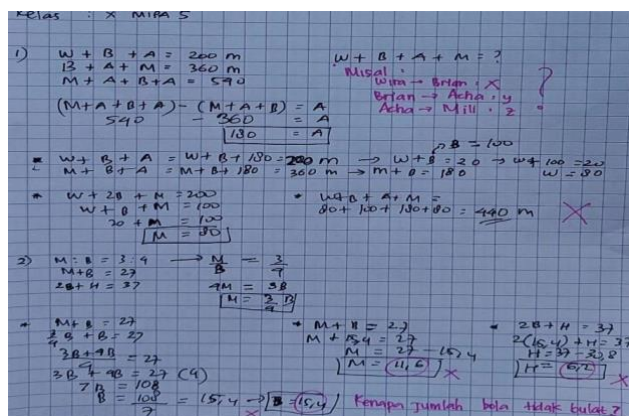 Kelas : X MIPA 5
1) W + B + A = 200 m
B + A + M = 360 m
M + A + B + A = 540
(M+A+B+A) - (M+A+B) = A
540 - 360 = A
180 = A
W + B + A + M = ?
Misal :
Wira → Brian : x
Brian → Acha : y
Acha → Mili : z
?
B = 100
* W + B + A = W + B + 180 = 200 m → W + B = 20 → W + 100 = 20
* M + B + A = M + B + 180 = 360 m → M + B = 180 W = 80
* W + 2B + M = 200
W + B + M = 100
20 + M = 100
M = 80
* W + B + A + M =
80 + 100 + 180 + 80 = 440 m
2) M : B = 3 : 4 → M/B = 3/4
M + B = 27 4M = 3B
2B + H = 37 M = 3/4 B
* M + B = 27
3/4 B + B = 27
3B + 4B = 27
4
3B + 4B = 27 (4)
7B = 108
B = 108/7 = 15,4 → B = 15,4
* M + B = 27
M + 15,4 = 27
M = 27 - 15,4
M = 11,6
* 2B + H = 37
2(15,4) + H = 37
H = 37 - 30,8
H = 6,2
Kenapa jumlah bola tidak bulat ?